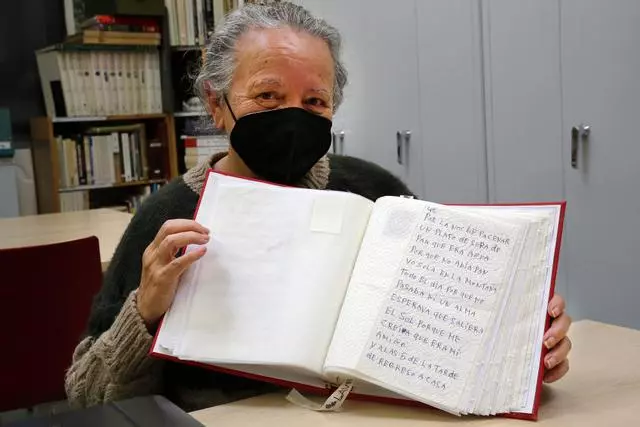 POR LA NOCHE PACENAR
UN PLATO DE SOPA DE
PAN QUE ERA
PORQUE NO ABIA PAN
YO SOLA EN LA MONTAÑA
TODO EL DIA PORQUE ME
PASABA NI UN ALMA
ESPERAVA QUE SALIERA
EL SOL PORQUE ME
CREIA QUE ERA MI
AMIGO
Y ALAS 6 DE LA TARDE
DE REGRESO A CASA